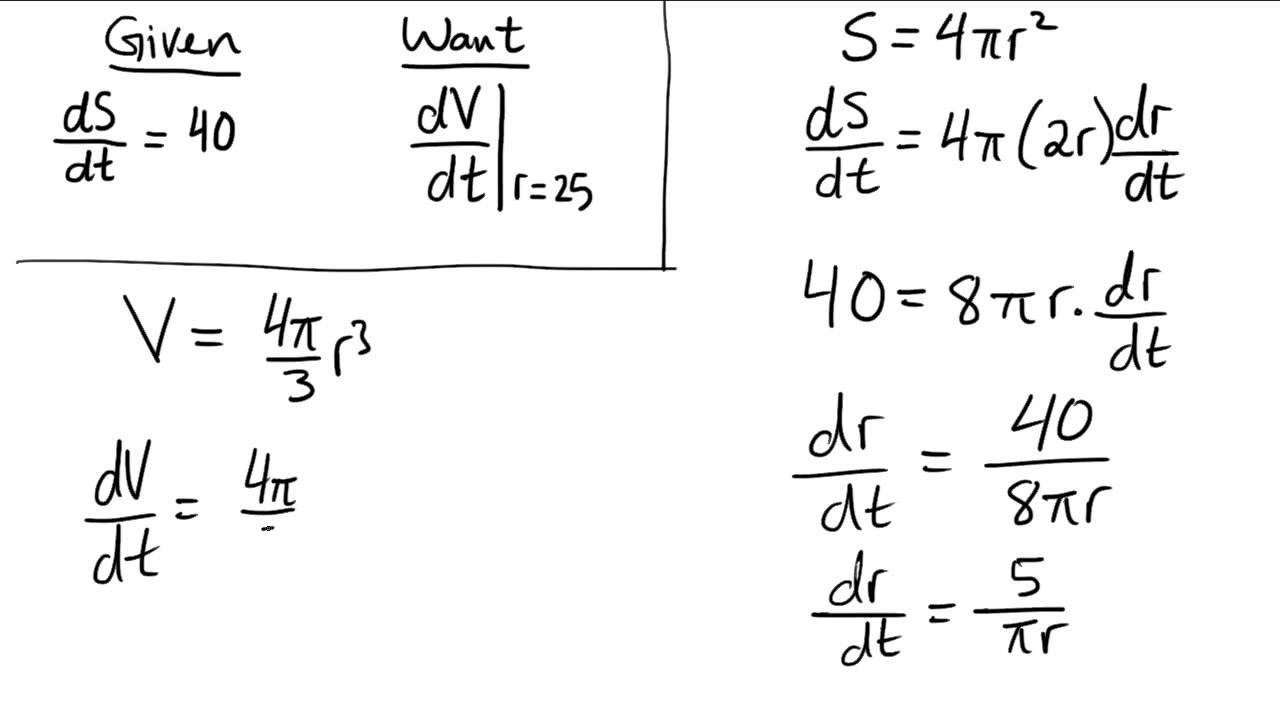 Given
dS/dt = 40
Want
dV/dt | r=25
V = 4π/3 r³
dV/dt = 4π
S = 4πr²
dS/dt = 4π(2r)dr/dt
40 = 8πr · dr/dt
dr/dt = 40/8πr
dr/dt = 5/πr